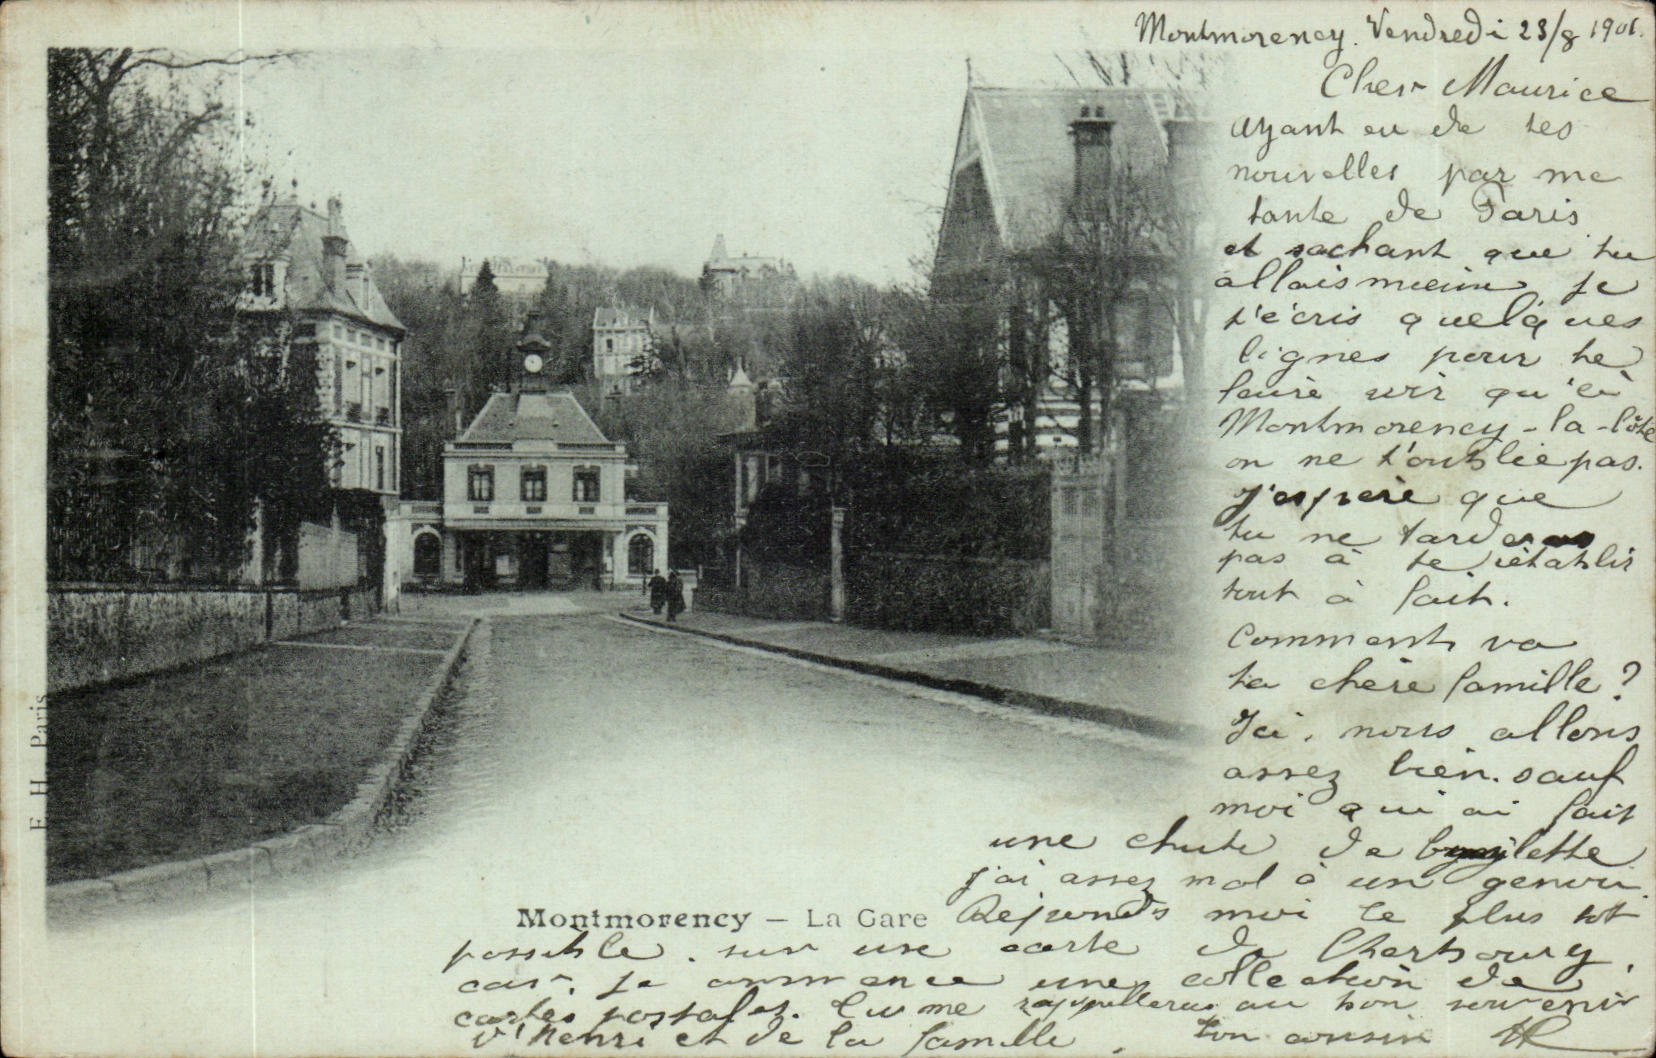 Montmorency. Vendredi 23/8 1901.
Cher Maurice
Ayant eu de tes
nouvelles par me
tante de Paris
et sachant que tu
allais mieux je
t'écris quelques
lignes pour te
faire voir qu'à
Montmorency-la-
on ne t'oublie pas.
J'espère que
tu ne tarderas
pas à te rétablir
tout à fait.
Comment va
ta chère famille?
Ici, nous allons
assez bien. sauf
moi qui ai fait
une chute de bycylette
j'ai assez mal à un genoui
Montmorency – La Gare
Reponds moi le plus tot
possible. sur une carte de Cherbourg,
car, je commence une collection de
cartes postales. Tu me rappelleras au bon souvenir
d'Henri et de la famille. ton cousin
E. H. Paris